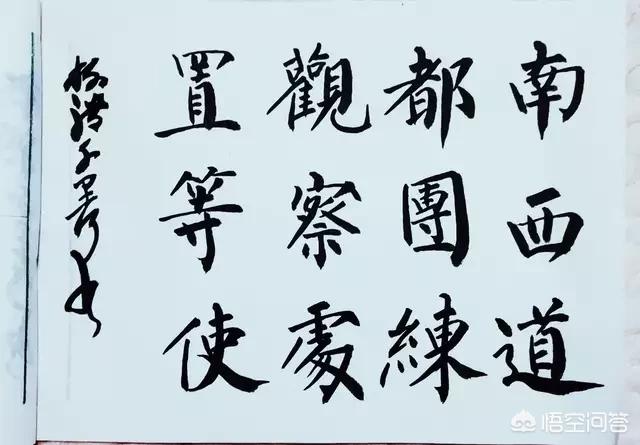 南西道
都團練
觀察處
置等使
悟空问答